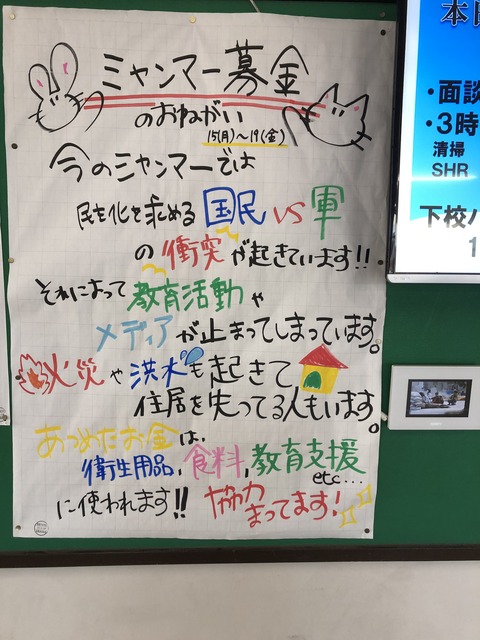 ミャンマー募金
のおねがい
15(月)〜19(金)
今のミャンマーでは
民主化を求める 国民 VS 軍
の 衝突 が起きています!!
それによって 教育活動 や
メディア が止まってしまっています。
火災 や 洪水 も 起きて
住居を失ってる人もいます。
あつめたお金 は、
衛生用品, 食料, 教育支援
etc...
に使われます!! 協力
まってます!
・面談
・3時
清掃
SHR
下校
1